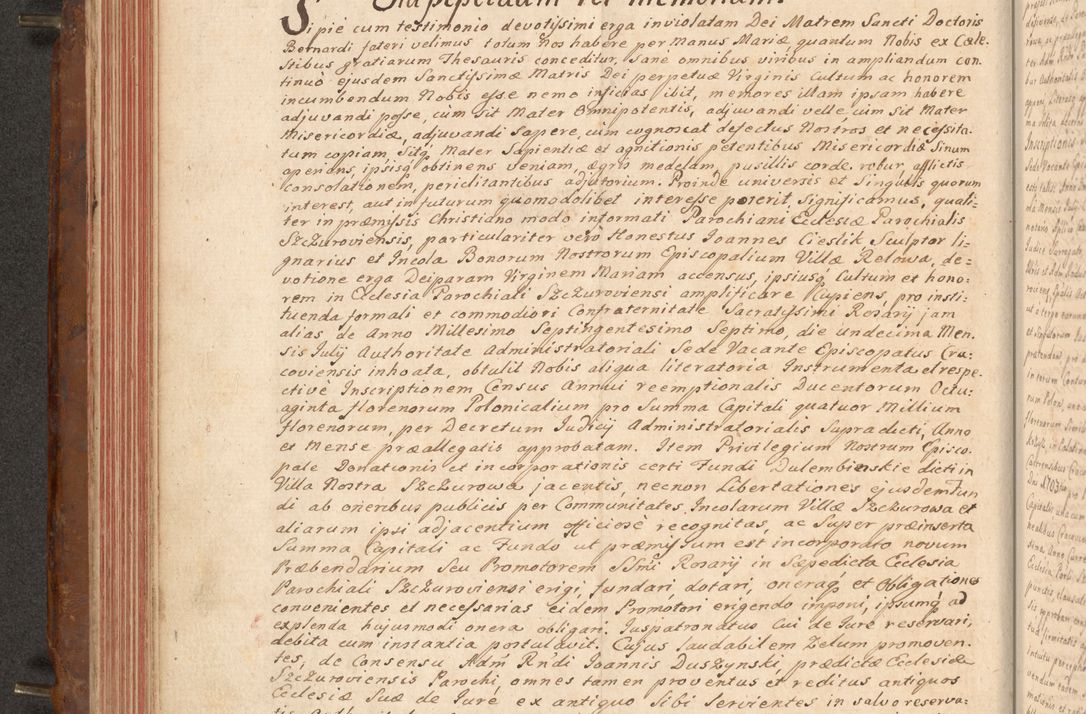 Ad perpetuam rei memoriam.
Si pie cum testimonio devotissimi erga inviolatam Dei Matrem Sancti Doctoris
Bernardi fateri velimus totum Nos habere per manus Mariæ quantum Nobis ex Cæle-
stibus gratiarum Thesauris conceditur, sane omnibus viribus in ampliandum con-
tinuò ejusdem Sanctissimæ Matris Dei perpetuæ Virginis Cultum ac honorem
incumbendum Nobis esse nemo inficias ibit, memores illam ipsam habere
adjuvandi posse, cùm sit Mater Omnipotentis, adjuvandi velle, cùm sit Mater
Misericordiæ, adjuvandi Sapere, cùm cognoscat defectus Nostros et necessita-
tum copiam, Sitq Mater Sapientiæ et agnitionis petentibus Misericordiæ Sinum
aperiens, ipsisq obtinens veniam, ægris medelam, pusillis corde robur, afflictis
consolationem, periclitantibus adjutorium. Proinde universis et Singulis quorum
interest, aut in futurum quomodolibet interesse poterit, Significamus, quali-
ter in præmissis Christiano modo informati Parochiani Ecclesiæ Parochialis
SzczuroviensIs, particulariter verò Honestus Joannes Cieslik Sculptor li-
gnarius et Incola Bonorum Nostrorum Episcopalium Villæ Relowa, de-
votione erga Deiparam Virginem Mariam accensus, ipsiusq Cultum et hono-
rem in Ecclesia Parochiali Szczuroviensi amplificare Cupiens, pro insti-
tuenda formali et commodiori Confraternitate Sacratissimi Rosarij jam
alias de Anno Millesimo Septingentesimo Septimo, die undecima Men-
sis Julij Authoritate Administratoriali Sede Vacante Episcopatus Cra-
coviensis inhoata, obtulit Nobis aliqua literatoria Instrumenta et respe-
ctivè Inscriptionem Census Annui reemptionalis Ducentorum Octu-
aginta florenorum Polonicalium pro Summa Capitali quatuor Millium
florenorum, per Decretum Judicij Administratorialis Supradicti, Anno
et Mense præallegatis approbatam. Item Privilegium Nostrum Episco-
pale Donationis et incorporationis certi Fundi Dulembinskie dicti in
Villa Nostra Szczurowa jacentis, necnon Libertationes ejusdem Fun
di ab oneribus publicis per Communitates Incolarum Villæ Szczurowa et
aliarum ipsi adjacentium officiosè recognitas, ac Super præinserta
Summa Capitali ac Fundo ut præmissum est incorporato novum
Præbendarium Seu Promotorem SSmi Rosarij in Sæpedicta Ecclesia
Parochiali Szczuroviensi erigi, fundari, dotari, oneraq et Obligationes
convenientes et necessarias eidem Promotori erigendo imponi, ipsumq ad
explenda hujusmodi onera obligari. Juspatronatus Cui de Jure reservari,
debita cum instantia postulavit. Cujus laudabilem Zelum promoven-
tes, de Consensu Adm Rndi Joannis Duszynski, prædictæ Ecclesiæ
Szczuroviensis Parochi omnes tamen proventus et reditus antiquos
Ecclesiæ Suæ de Jure ex antiquo Sibi Servientes in salvo reserva-